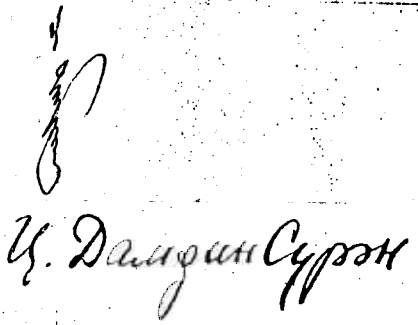 Ц. ДамдинСүрэн